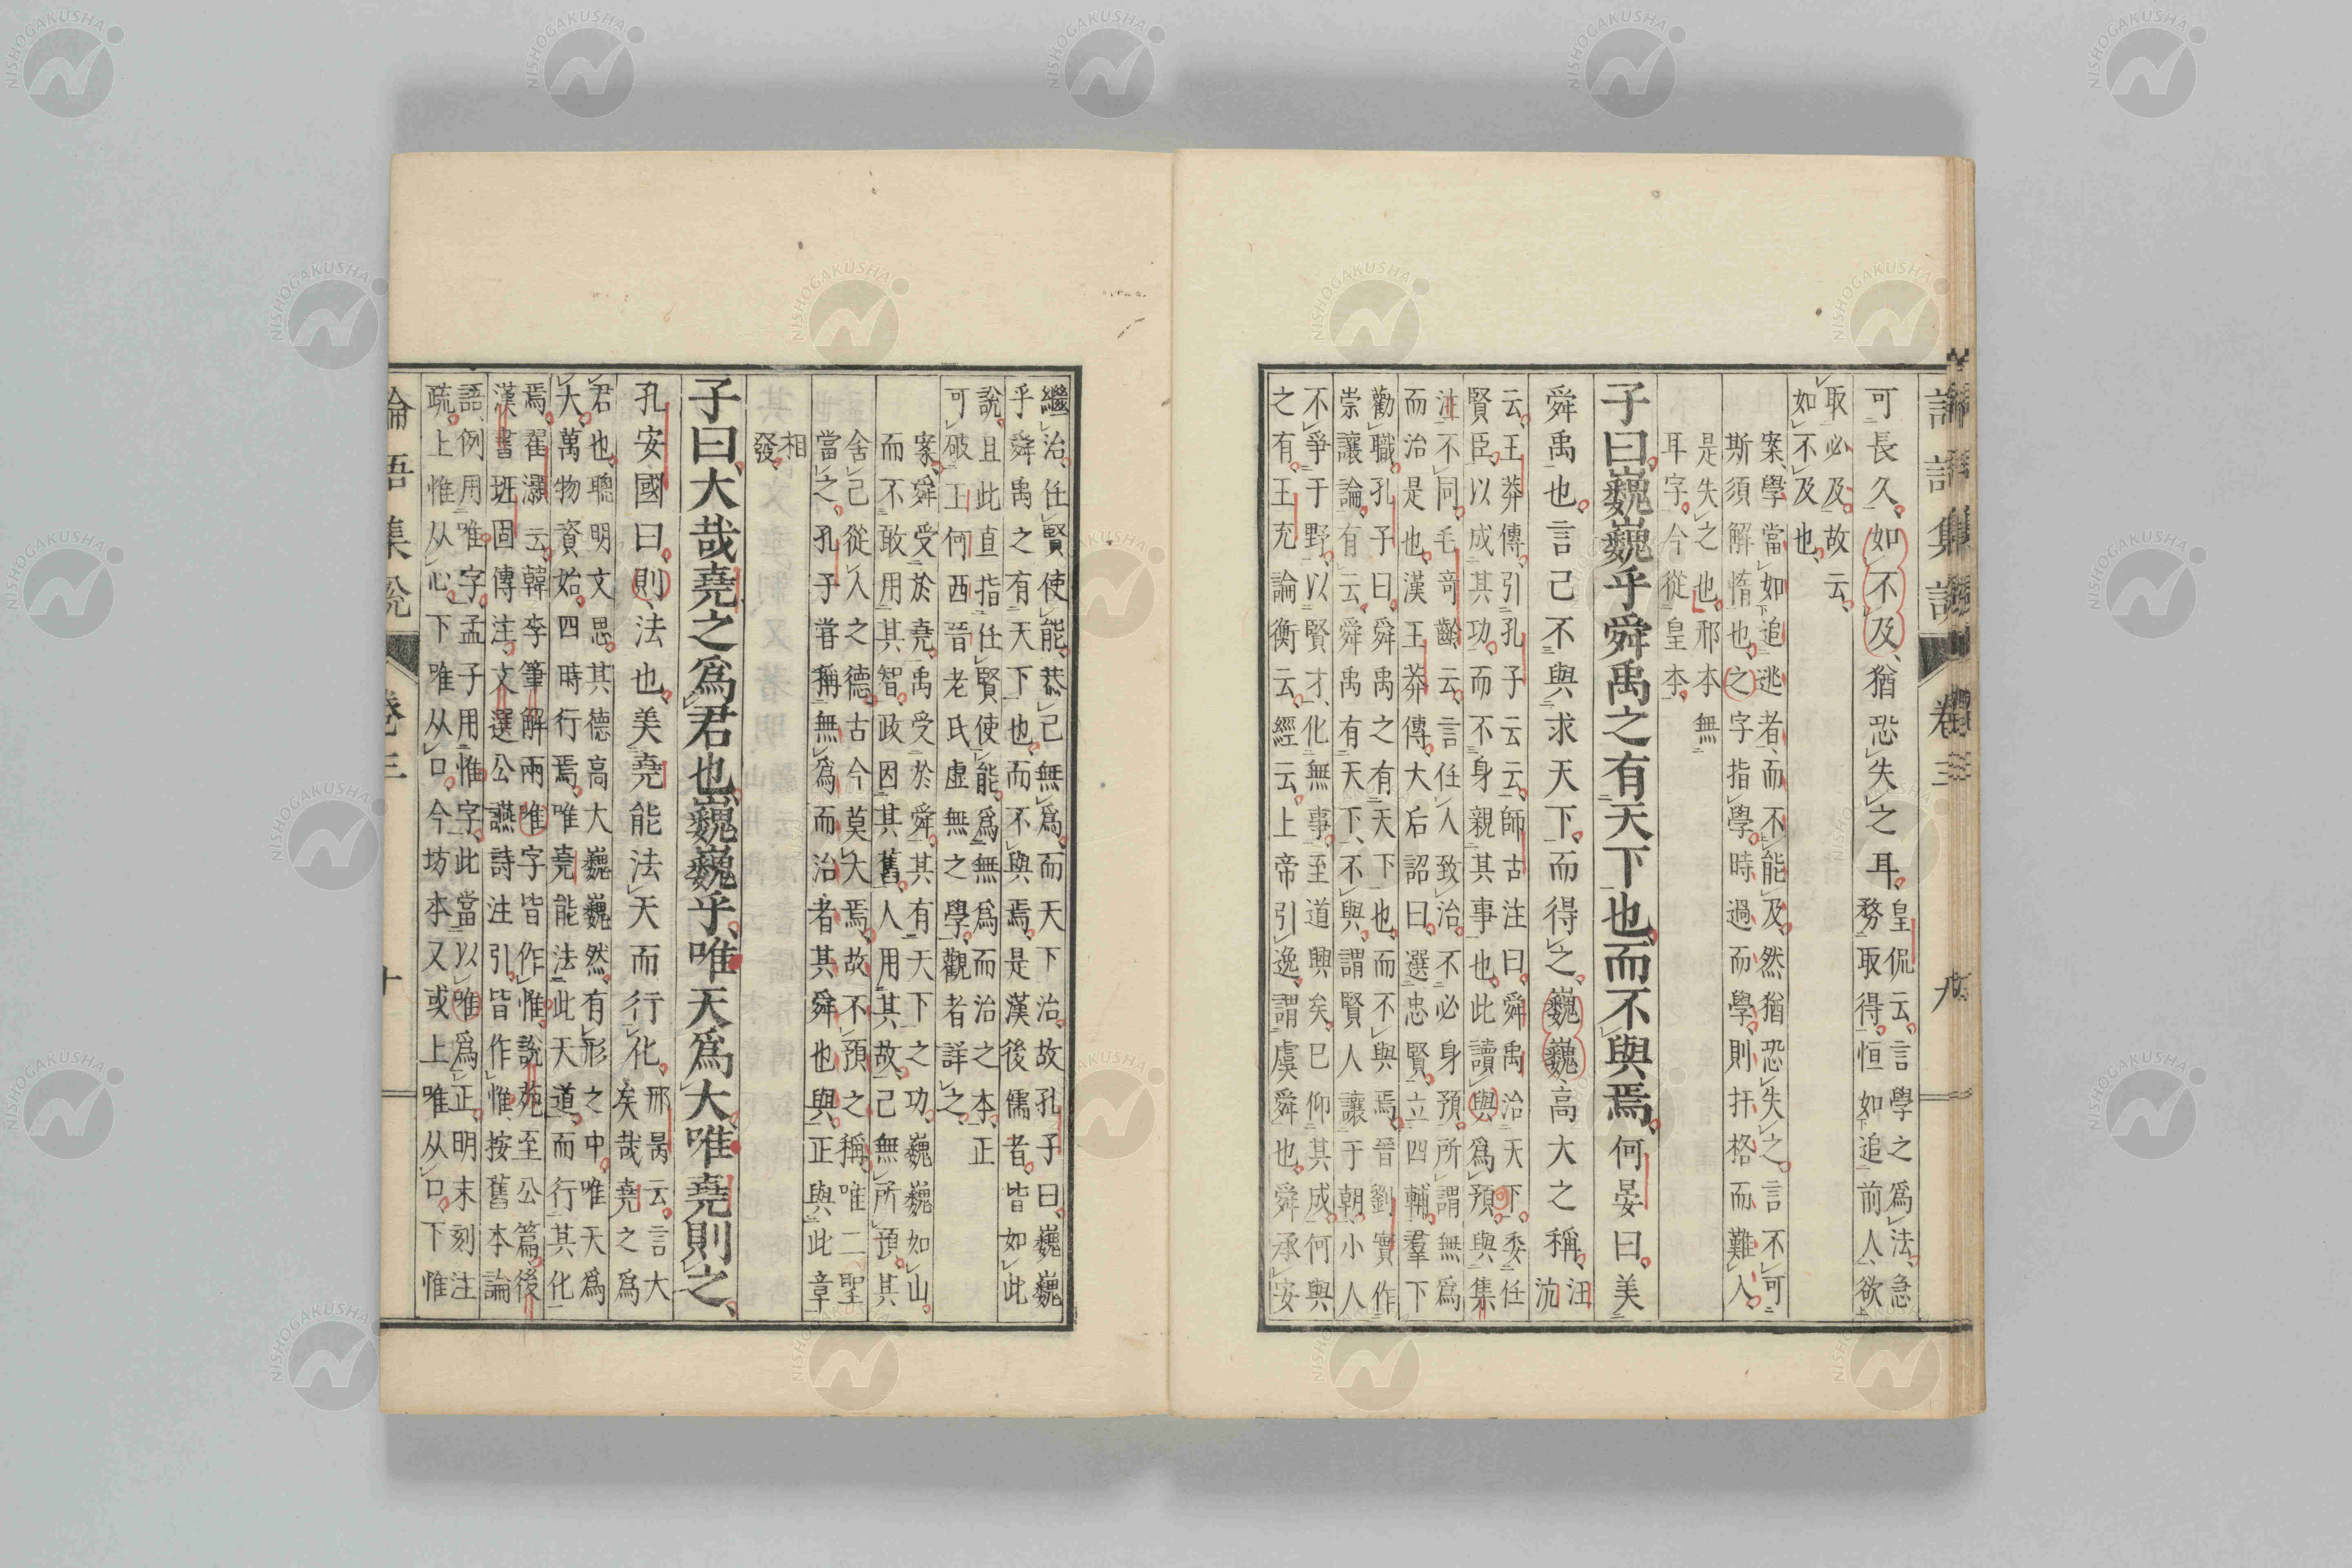 論語集說 卷三 九
可長久、如不及、猶恐失之耳、皇侃云、言學之爲法、急
務取得、恒如追前人、欲
取必及、故云、
如不及也、
案、學當如追逃者、而不能及、然猶恐失之、言不可
斯須解惰也、之字指學、時過而學、則扞格而難入、
是失之也、邢本無
耳字、今從皇本、
子曰、巍巍乎舜禹之有天下也、而不與焉、何晏曰、美
舜禹也、言己不與求天下、而得之、巍巍、高大之稱、汪
沆
云、王莽傳、引孔子云云、師古注曰、舜禹治天下、委任
賢臣、以成其功、而不身親其事也、此讀與爲預、與集
注不同、毛奇齡云、言任人致治、不必身預、所謂無爲
而治是也、漢王莽傳、大后詔曰、選忠賢、立四輔、羣下
勸職、孔子曰、舜禹之有天下也、而不與焉、晉劉寔作
崇讓論、有云、舜禹有天下、不與、謂賢人讓于朝、小人
不爭于野、以賢才化無事、至道興矣、已仰其成、何與
之有、王充論衡云、經云、上帝引逸、謂虞舜也、舜承安
繼治、任賢使能、恭己無爲、而天下治、故孔子曰、巍巍
乎舜禹之有天下也、而不與焉、是漢後儒者、皆如此
說、且此直指任賢使能、爲無爲而治之本、正
可破王何西晉老氏虛無之學、觀者詳之、
案、舜受於堯、禹受於舜、其有天下之功、巍巍如山、
而不敢用其智、政因其舊、人用其故、己無所預、其
舍己從人之德、古今莫大焉、故不預之稱、唯二聖
當之、孔子嘗稱無爲而治者、其舜也與、正與此章
相
發、
子曰、大哉堯之爲君也、巍巍乎、唯天爲大、唯堯則之、
孔安國曰、則、法也、美堯能法天而行化、邢昺云、言大
矣哉、堯之爲
君也、聰明文思、其德高大、巍巍然、有形之中、唯天爲
大、萬物資始、四時行焉、唯堯能法此天道、而行其化
焉、翟灝云、韓李筆解兩唯字皆作惟、說苑至公篇、後
漢書班固傳注、文選公讌詩注引、皆作惟、按舊本論
語例用唯字、孟子用惟字、此當以唯爲正、明末刻注
疏、上惟从心、下唯从口、今坊本又或上唯从口、下惟
論語集說 卷三 十
NISHOGAKUSHA